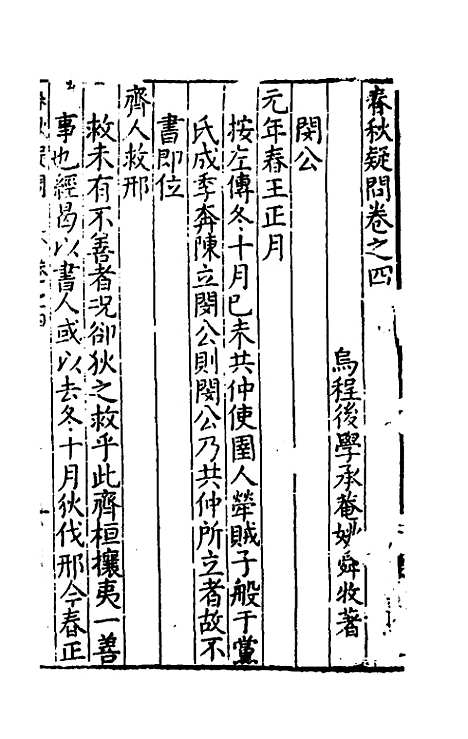 春秋疑問卷之四
烏程後學承菴姚舜牧著
閔公
元年春王正月
按左傳冬十月已未共仲使圉人犖賊子般于黨
氏成季奔陳立閔公則閔公乃共仲所立者故不
書即位
齊人救邢
救未有不善者况卻狄之救乎此齊桓攘夷一善
事也經曷以書人或以去冬十月狄伐邢今春正